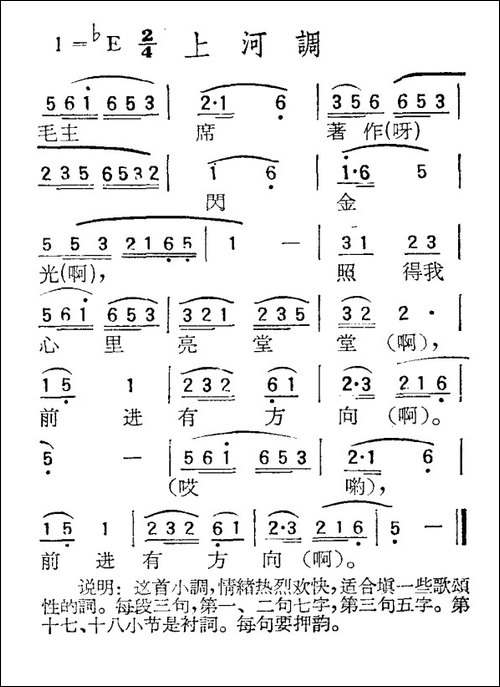 1=♭E 2/4 上河調
5 6 i 6 5 3 | 2·1 6 | 3 5 6 6 5 3 |
毛主 席 著 作(呀)
2 3 5 6 5 3 2 | i 6 | i·6 5 |
閃 金
5 5 3 2 1 6 5 | 1 — | 3 1 2 3 |
光(啊), 照 得我
5 6 i 6 5 3 | 3 2 1 2 3 5 | 3 2 2 · |
心 里 亮 堂 堂 (啊),
1 5 1 | 2 3 2 6 1 | 2·3 2 1 6 |
前 进 有 方 向 (啊)。
5 — | 5 6 i 6 5 3 | 2·1 6 |
(哎 喲),
1 5 1 | 2 3 2 6 1 | 2·3 2 1 6 | 5 — ‖
前 进 有 方 向 (啊)。
说明:这首小調,情緒热烈欢快,适合填一些歌頌
性的詞。每段三句,第一、二句七字,第三句五字。第
十七、十八小节是衬詞。每句要押韵。